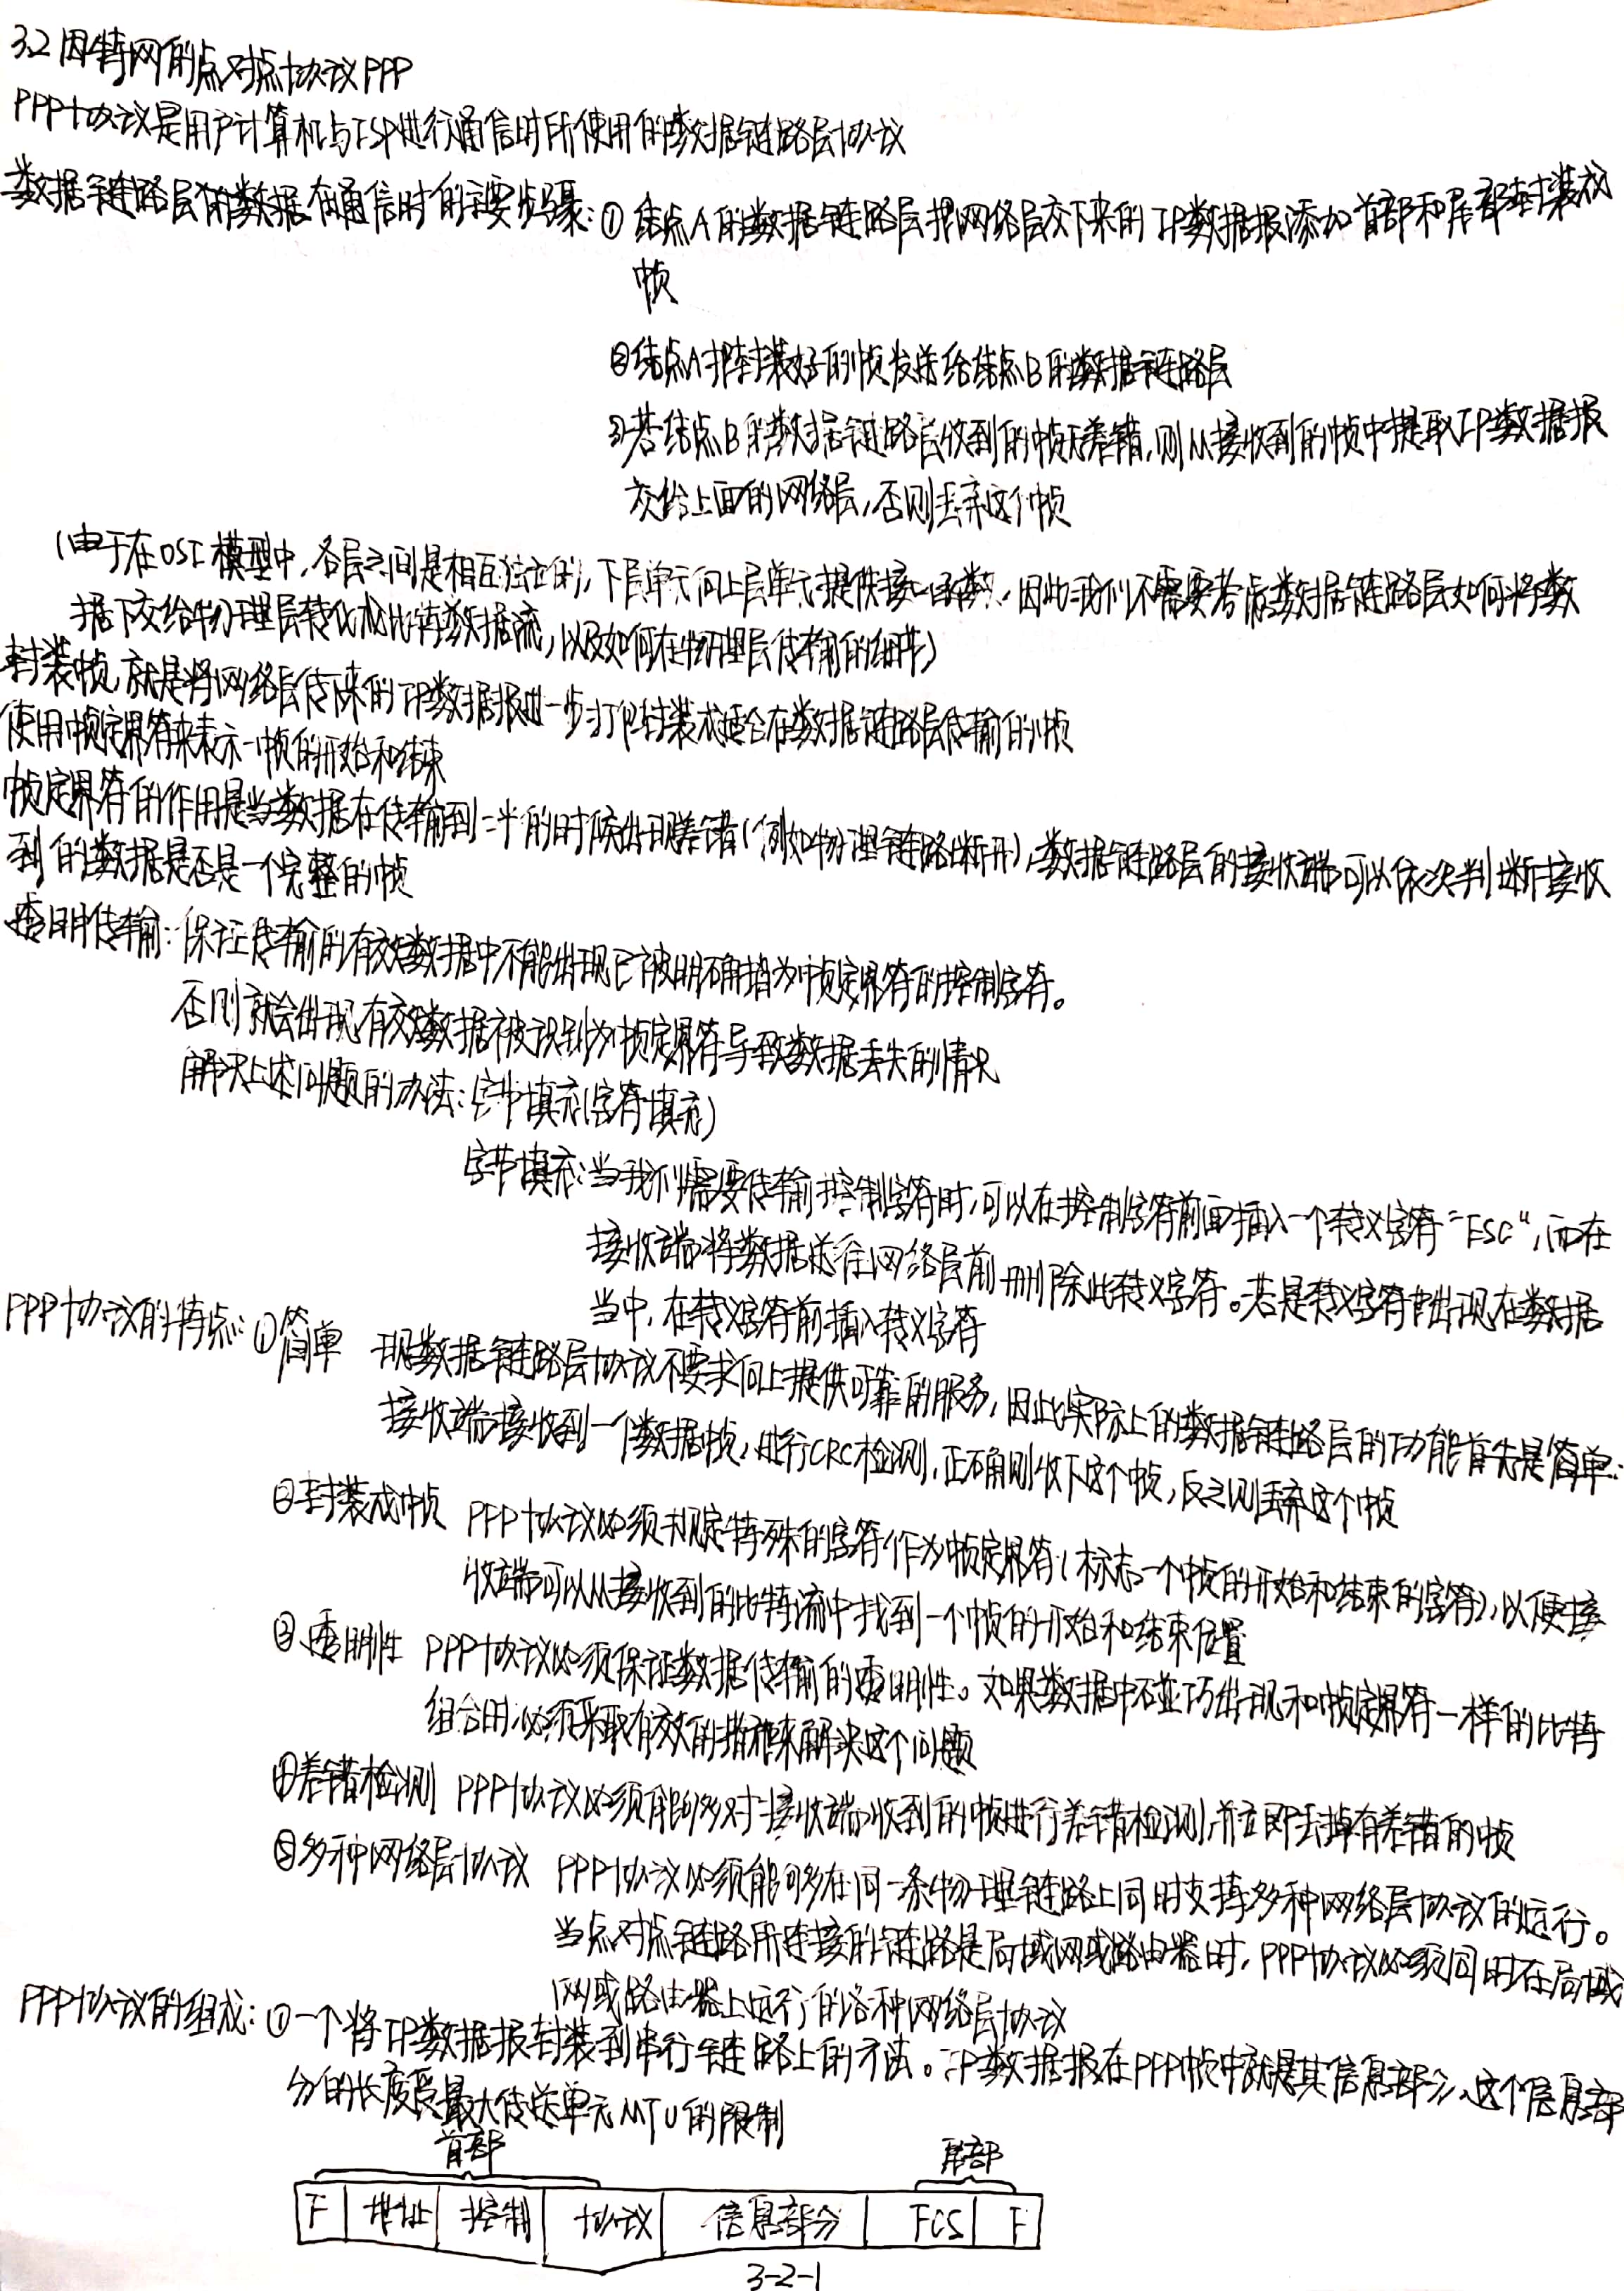 3.2因特网的点对点协议PPP
PPP协议是用户计算机与ISP进行通信时所使用的数据链路层协议
数据链路层的数据在通信时的主要步骤:①结点A的数据链路层把网络层交下来的IP数据报添加首部和尾部封装成
帧
②结点A把封装好的帧发送给结点B的数据链路层
③若结点B的数据链路层收到的帧无差错,则从接收到的帧中提取IP数据报
交给上面的网络层,否则丢弃这个帧
(由于在OSI模型中,各层之间是相互独立的,下层单元向上层单元提供接口函数,因此我们不需要考虑数据链路层如何将数
据下交给物理层转化成比特数据流,以及如何在物理层传输的细节)
封装帧,就是将网络层传下来的IP数据报进一步打包封装成适合在数据链路层传输的帧
使用帧定界符来表示一帧的开始和结束
帧定界符的作用是当数据在传输到一半的时候出现差错(例如物理链路断开),数据链路层的接收端可以依次判断接收
到的数据是否是一个完整的帧
透明传输:保证传输的有效数据中不能出现已被明确指为帧定界符的控制字符。
否则就会出现有效数据被识别为帧定界符导致数据丢失的情况
解决上述问题的办法:字节填充(字符填充)
字节填充:当我们需要传输控制字符时,可以在控制字符前面插入一个转义字符"ESC",而在
接收端将数据送往网络层前删除此转义字符。若是转义字符也出现在数据
当中,在转义字符前插入转义字符
PPP协议的特点:①简单 现数据链路层协议不要求向上提供可靠的服务,因此实际上的数据链路层的功能首先是简单:
接收端接收到一个数据帧,进行CRC检测,正确则收下这个帧,反之则丢弃这个帧
②封装成帧 PPP协议必须规定特殊的字符作为帧定界符(标志一个帧的开始和结束的字符),以便接
收端可以从接收到的比特流中找到一个帧的开始和结束位置
③透明性 PPP协议必须保证数据传输的透明性。如果数据中不碰巧出现和帧定界符一样的比特
组合时,必须采取有效的措施来解决这个问题
④差错检测 PPP协议必须能够对接收端收到的帧进行差错检测,并立即丢掉有差错的帧
⑤多种网络层协议 PPP协议必须能够在同一条物理链路上同时支持多种网络层协议的运行。
当点对点链路所连接的链路是局域网或路由器时,PPP协议必须同时在局域
网或路由器上运行的各种网络层协议
PPP协议的组成:①一个将IP数据报封装到串行链路上的方法。IP数据报在PPP帧中就是其信息部分,这个信息部
分的长度受最大传送单元MTU的限制
首部 尾部
F 地址 控制 协议 信息部分 FCS F
3-2-1